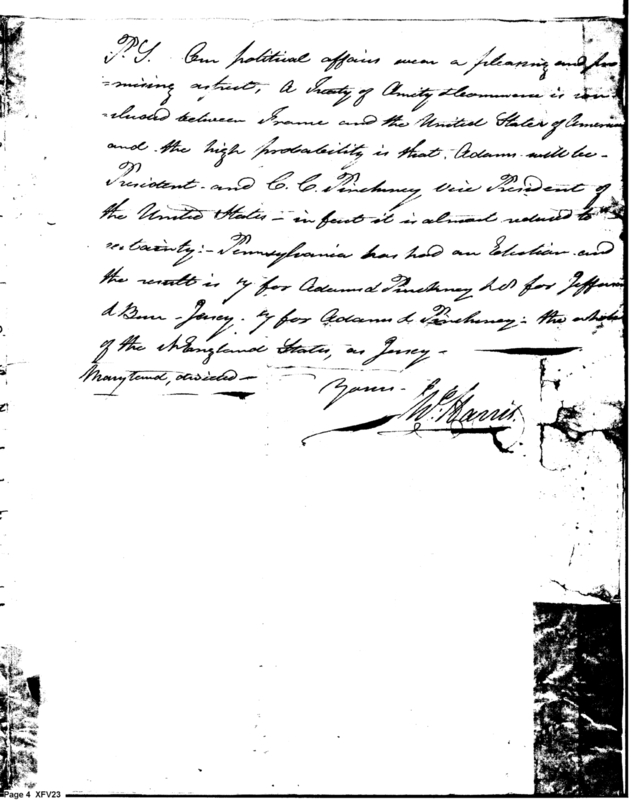 P.S. Our political affairs wear a pleasing and pro
=mising aspect, A Treaty of Amity & Commerce is con
=cluded between France and the United States of America
and the high probability is that Adams will be -
President - and C. C. Pinckney Vice President of
the United States - in fact it is almost reduced to
certainty: - Pennsylvania has had an Election and
the result is 7 for Adams & Pinckney & 8 for Jefferson
& Burr - Jersey - 7 for Adams & Pinckney - the whole
of the N England States, as Jersey -
Maryland, divided -
Yours -
Harris
Page 4 XFV23